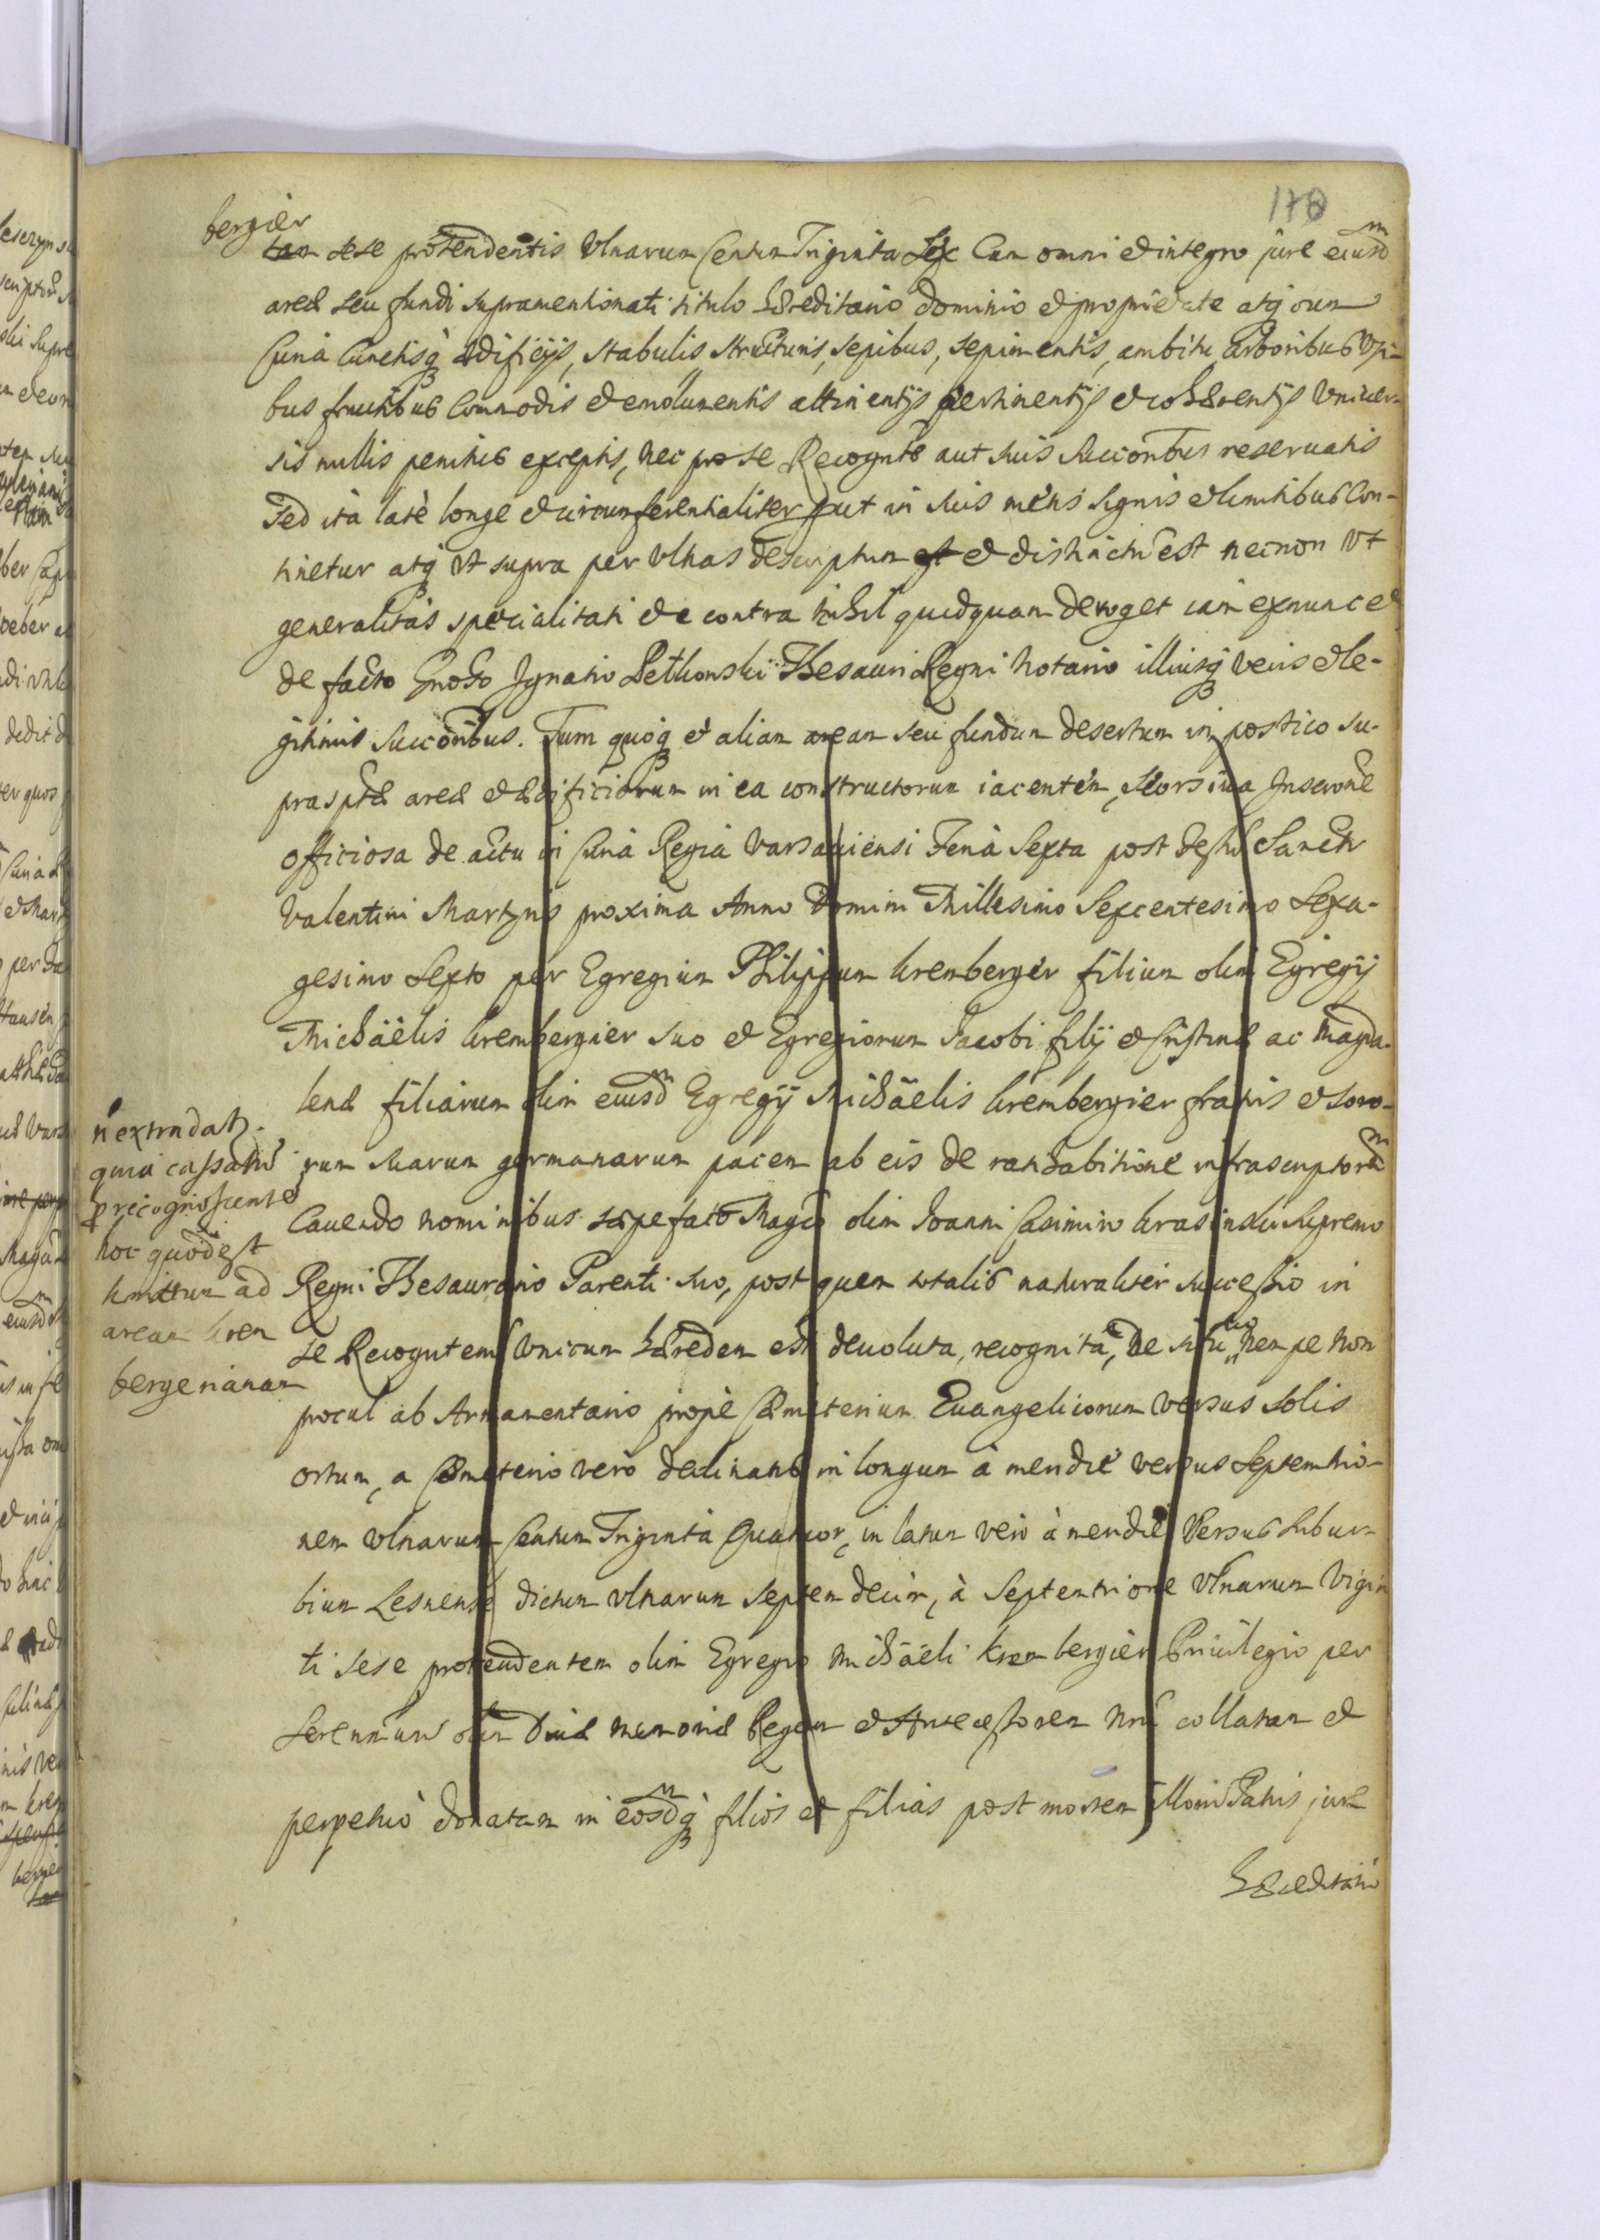 178
bergier
tam sese protendentis Ulnarum Centum Triginta Sex Cum omni et integro jure eiusdm
areæ seu fundi supramentionati titulo hæreditario dominio et proprietate atq cum
Curia Cunctisq ædificijs, stabulis structuris, sepibus, sepimentis, ambitu arboribus
bus fructibus Commodis et emolumentis attinentijs pertinentijs et cohærentijs Univer-
sis nullis penitus exceptis, nec pro se Recognte aut suis Succoribus reservatis
Sed ita latè longe et circumferentialiter put in suis metis signis et limitibus Con-
tinetur atq Ut supra per Ulnas descriptum est et distinctu est necnon Ut
generalitas specialitati et e contra nihil quidquam deroget iam exnunc et
de facto Gnoso Ignatio Pethowski Thesauri Regni Notario illiusq veris et le-
gitimis succoribus. Tum quoq et aliam aream seu fundum desertum in postico su-
prasptæ areæ et ædificiorum in ea constructorum iacentem, Seorsiva Inscrone
officiosa de actu in Curia Regia Varsaviensi Feria Sexta post festu Sancti
Valentini Martyris proxima Anno Domini Millesimo Sexcentesimo Sexa-
gesimo Septo per Egregium Philippum Kremberger filium olim Egregij
Michaëlis Krembergier suo et Egregiorum Jacobi filij et Cristinæ ac Magda-
lenæ filiarum olim eiusdm Egregij Michaëlis Krembergier fratris et soro-
rum suarum germanarum pacem ab eis de ratihabitione infrascriptorum
Cavendo nominibus sæpefato Magco olim Joanni Casimiro Krasinski Supremo
Regni Thesaurario Parenti suo, post quem totalis naturaliter successio in
se Recogntem Unicum hæredem est devoluta, recognita, De situ nempe non
procul ab Armamentario propè Cæmiterium Evangelicorum versus solis
ortum, a Cæmiterio vero declinatis in longum à meridie versus Septemtrio-
nem Ulnarum Centum Triginta Quatuor, in latum vero à meridie Versus Subur-
bium Lesnense dictum Ulnarum septem decim, à Septemtrione Ulnarum Vigin
ti sese protendentem olim Egregio Michaëli Krembergier Privilegio per
Serenmum olim Divæ memoriæ Regem et Antecessorem Nrm collatam et
perpetuò donatam in eosdmq filios et filias post mortem illorum Patris jure
Hæreditario
n extradatz.
quia cassatu
p recognoscente
hoc quod est
limittum ad
aream Krem
bergerianam